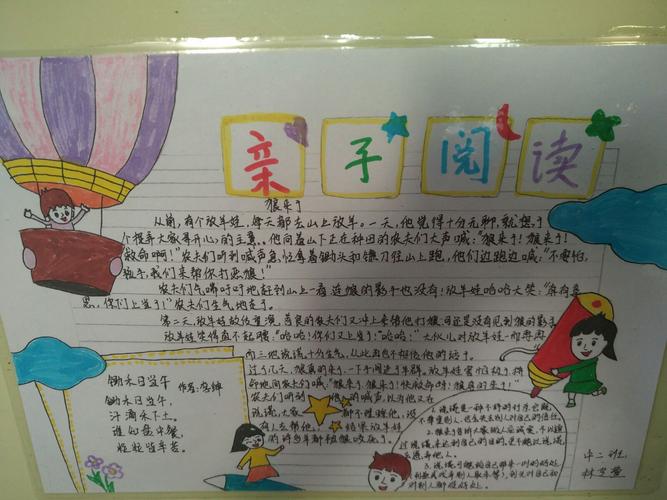 亲子阅读
狼来了
从前,有个放羊娃,每天都去山上放羊。一天,他觉得十分无聊,就想了
个捉弄大家寻开心的主意。他向着山下正在种田的农夫们大声喊:"狼来了!狼来了!
救命啊!"农夫们听到喊声急忙拿着锄头和镰刀往山上跑,他们边跑边喊:"不要怕,
孩子,我们来帮你打恶狼!"
农夫们气喘吁吁地赶到山上一看,连狼的影子也没有!放羊娃哈哈大笑:"真有意
思,你们上当了!"农夫们生气地走了。
第二天,放羊娃故伎重演,善良的农夫们又冲上来帮他打狼,可还是没有见到狼的影子。
放羊娃笑得直不起腰:"哈哈!你们又上当了!哈哈!"大伙儿对放羊娃一而再再
而三地说谎十分生气,从此再也不相信他的话了。
过了几天,狼真的来了,一下子闯进了羊群。放羊娃害怕极了,拼
命地向农夫们喊:"狼来了!狼来了!快救命呀!狼真的来了!"
农夫们听到 喊声,以为他又在
说谎,大家 都不理睬他,没
有人去帮他, 结果放羊娃
的许多羊都被狼咬死了。
锄禾日当午 作者:李绅
锄禾日当午,
汗滴禾下土。
谁知盘中餐,
粒粒皆辛苦
1、说谎是一种不好的行为,它既
不尊重别人,也会失去别人对自己的信任。
过说谎来达到自己的目的,更不能以说谎
中二班